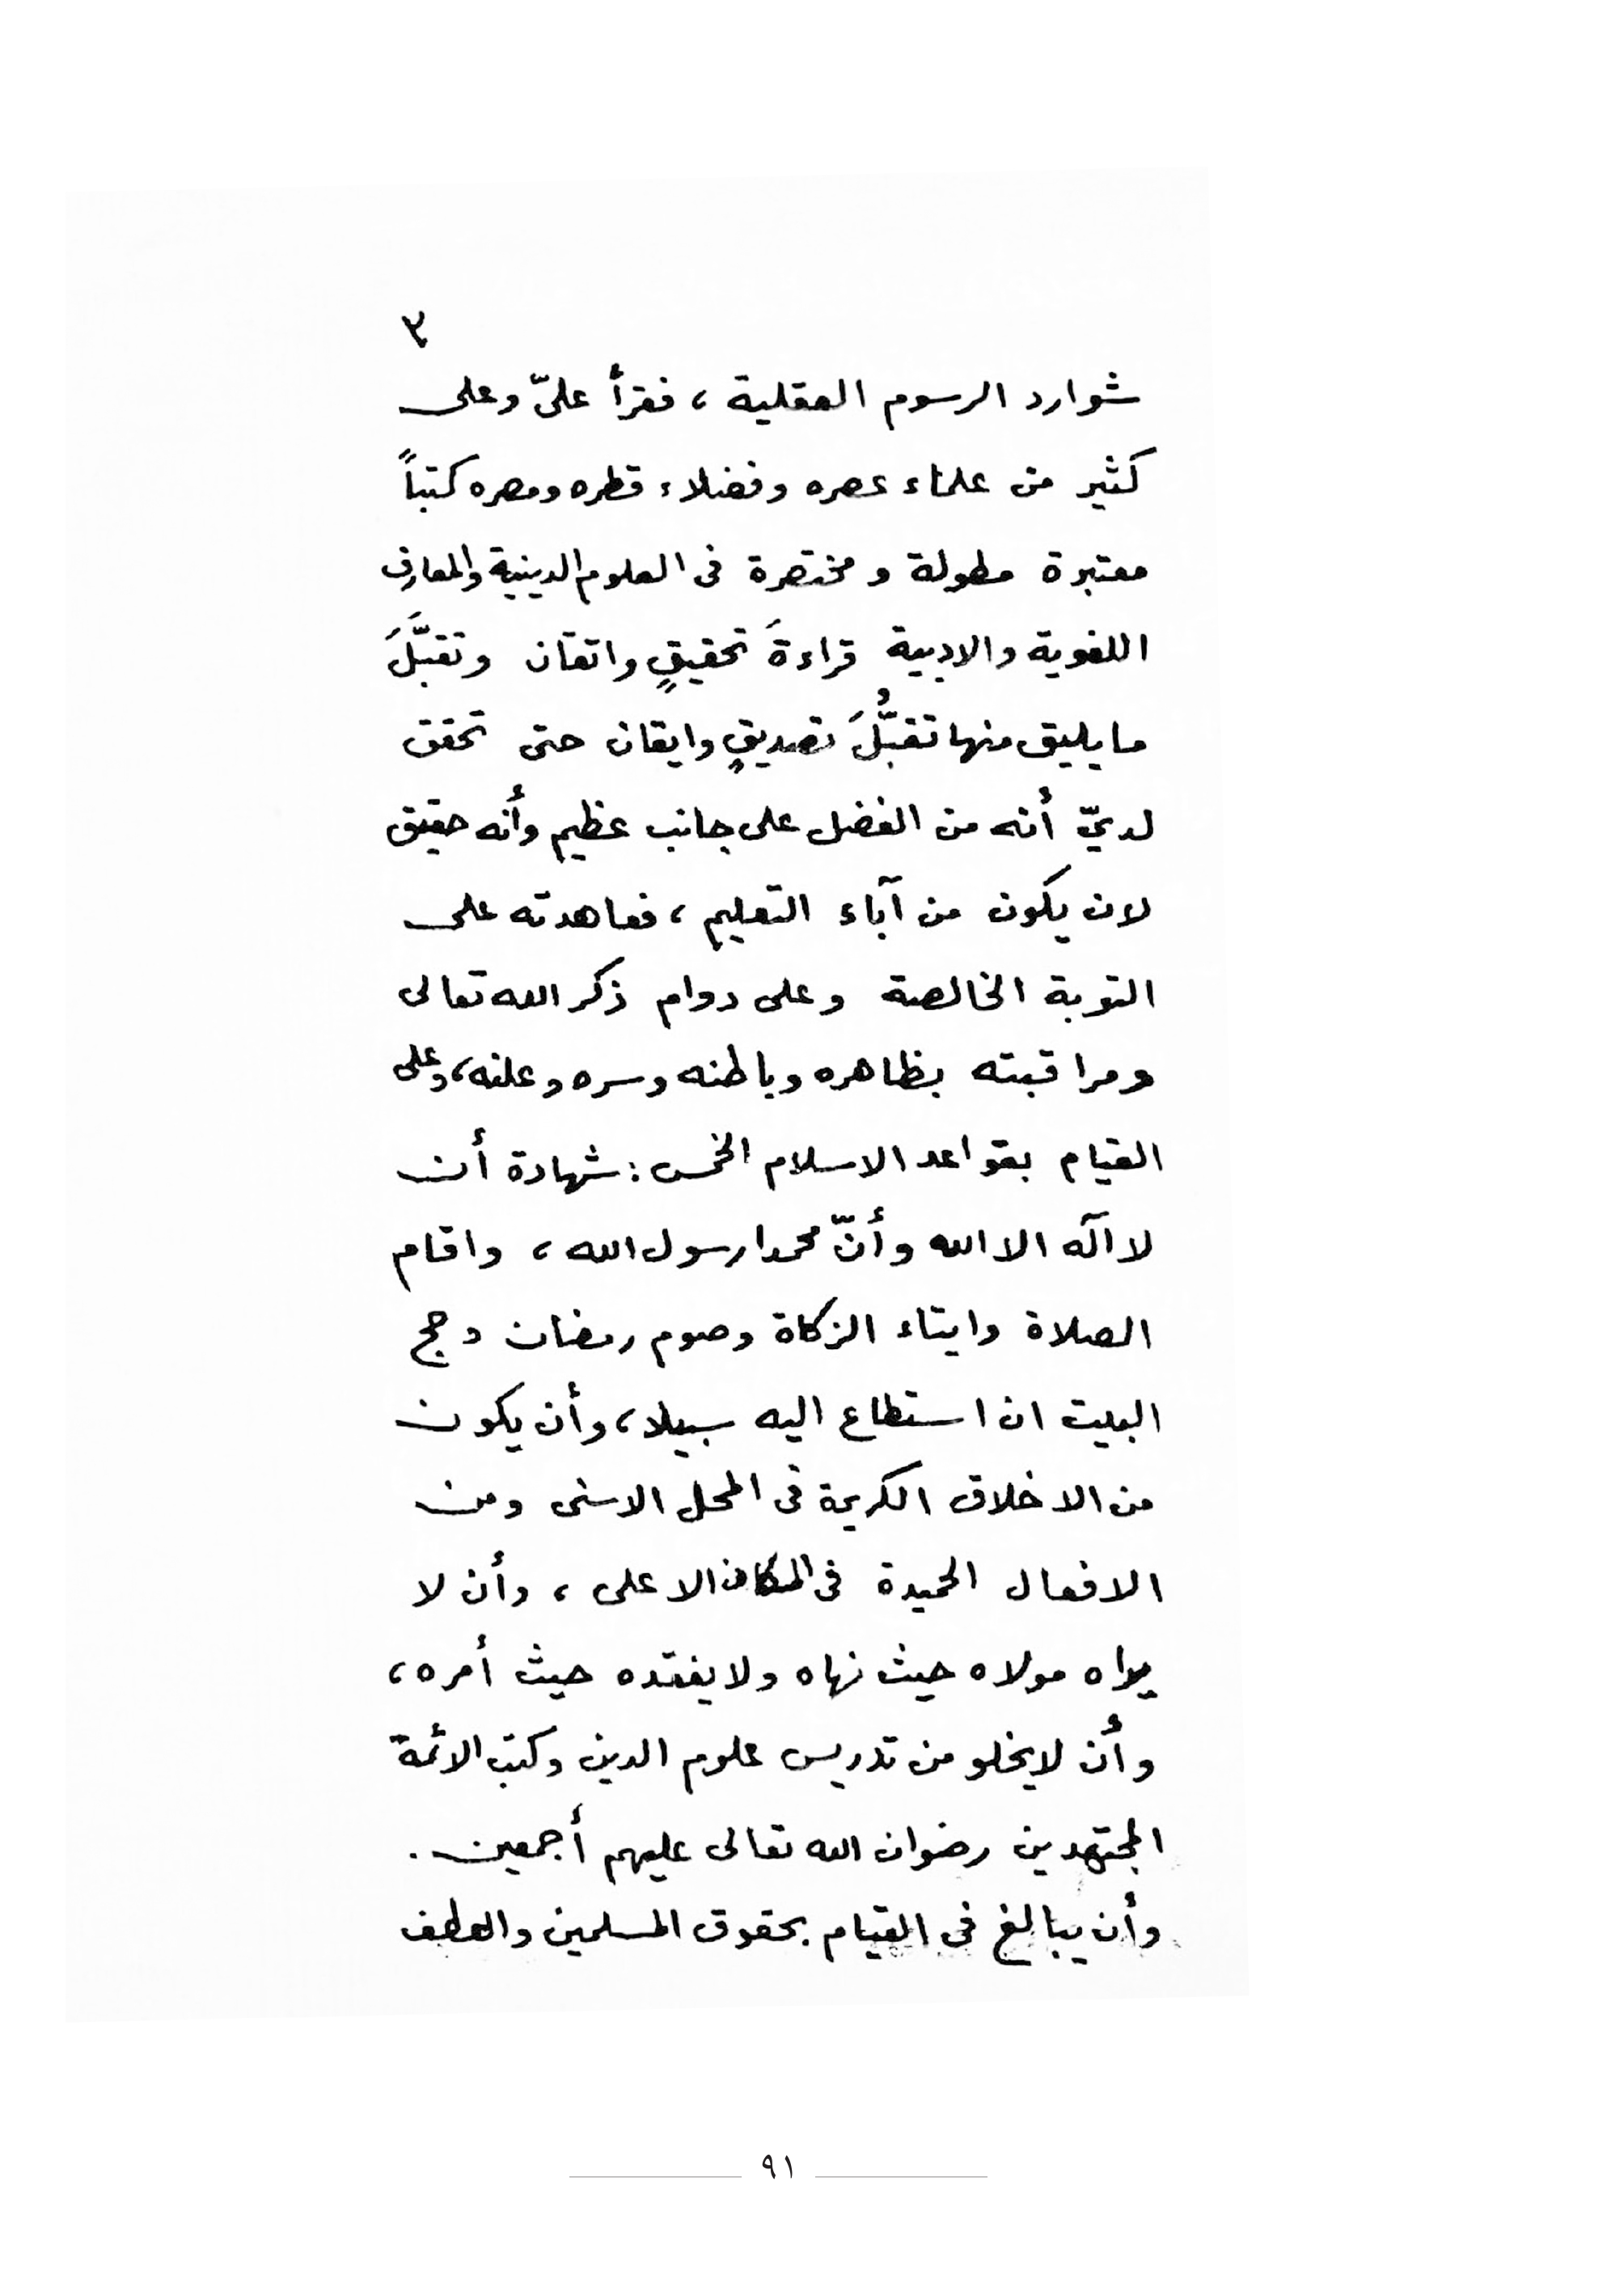 ٣
شوارد الرسوم العقلية ، فقرأ عليّ وعلى
كثير من علماء عصره وفضلاء قطره ومصره كتباً
معتبرة مطولة و مختصرة فى العلوم الدينية والمعارف
اللغوية والادبية قراءةَ تحقيقٍ واتقان وتقبَّلَ
ما يليق منها تقبُّلَ تصديقٍ وايقان حتى تحقق
لديّ أنه من الفضل على جانب عظيم وأنه حقيق
لان يكون من آباء التعليم ، فعاهدته على
التوبة الخالصة وعلى دوام ذكر الله تعالى
ومراقبته بظاهره وباطنه وسره وعلنه ، وعلى
القيام بقواعد الاسلام الخمس : شهادة أن
لا آله الا الله وأنّ محمدا رسول الله ، واقام
الصلاة وايتاء الزكاة وصوم رمضان وحج
البيت ان استطاع اليه سبيلا ، وأن يكون
من الاخلاق الكريمة فى المحل الاسنى ومن
الافعال الحميدة فى المكان الاعلى ، وأن لا
يراه مولاه حيث نهاه ولا يفتقده حيث أمره ،
وأن لا يخلو من تدريس علوم الدين وكتب الائمة
المجتهدين رضوان الله تعالى عليهم أجمعين .
وأن يبالغ فى القيام بحقوق المسلمين والعطف
٩١